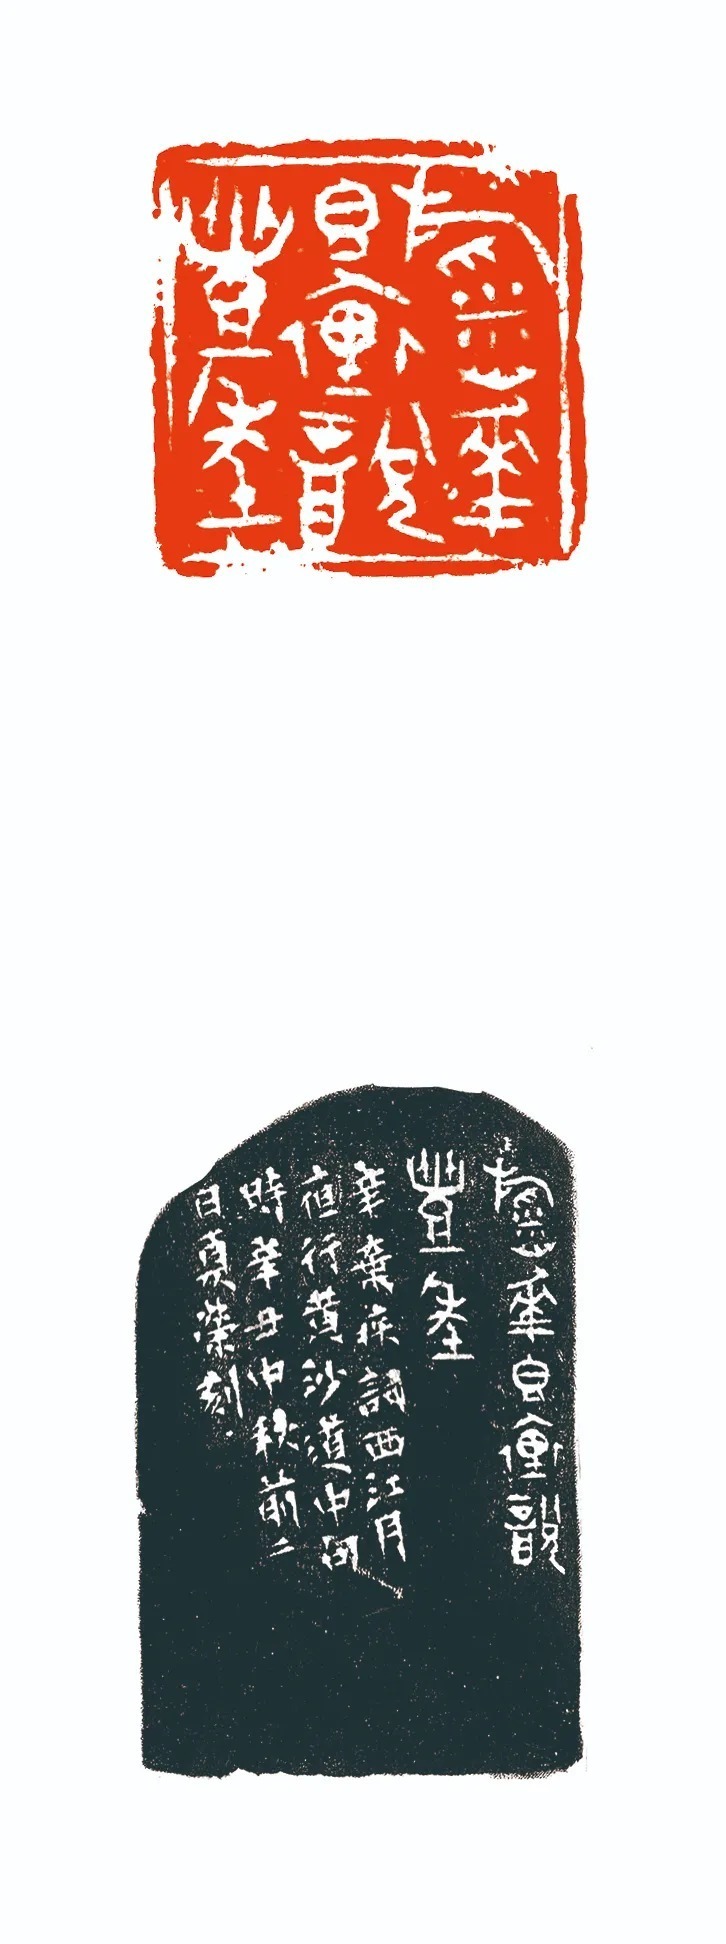 稻華
香裏說
豐年
稻華香裏說
豐年
辛棄疾詞西江月
夜行黄沙道中句
時辛丑中秋前二
日真榮刻